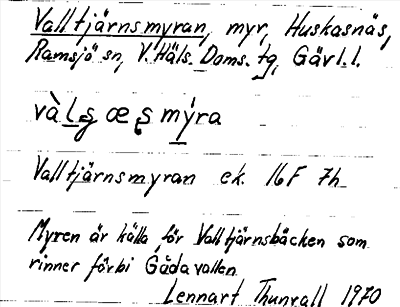 Valltjärnsmyran, myr, Huskasnäs,
Ramsjö sn, V. Häls. Doms. tg, Gävl.l.
Valltjärnsmyran ek. 16F 7h
Myren är källa för Valltjärnsbäcken som
rinner förbi Gådavallen
Lennart Thunvall 1970